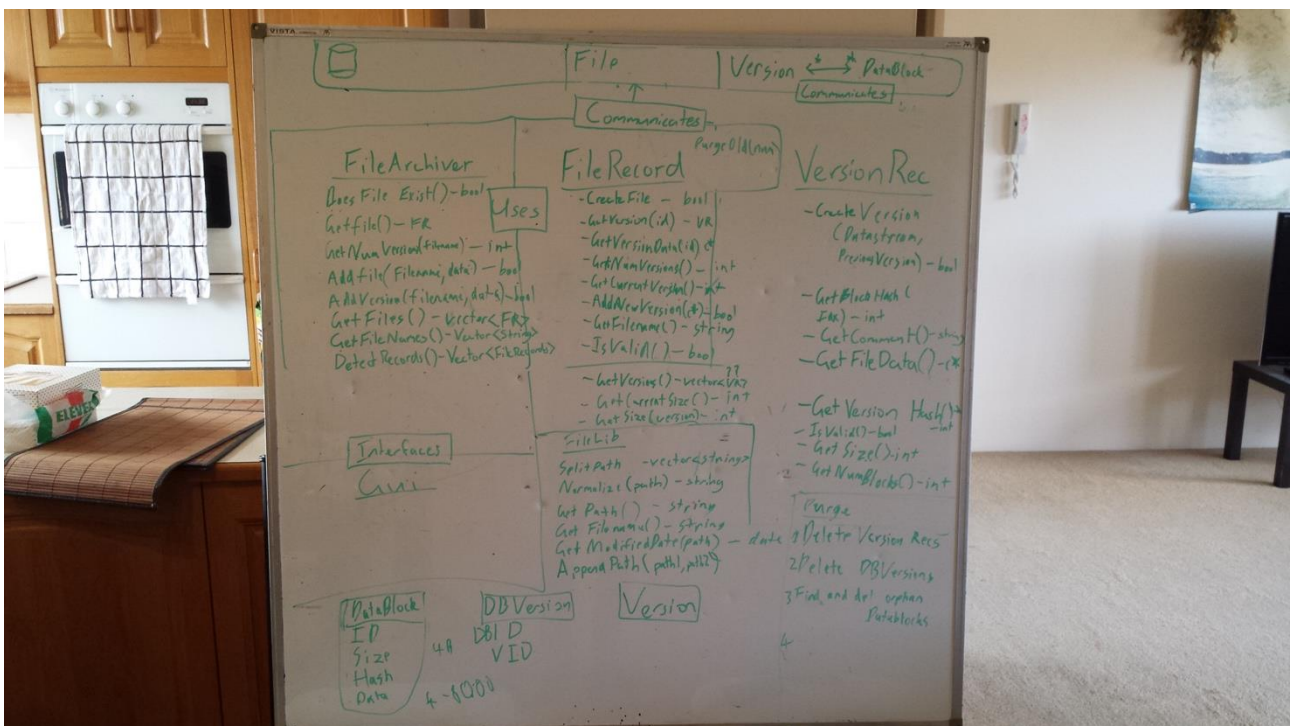 VISTA
File
Version
DataBlock
Communicates
Communicates
PurgeOld(num)
FileArchiver
Does File Exist() - bool
Getfile() - FR
GetNumVersion(filename) - int
Addfile(Filename, data) - bool
AddVersion(filename, data) - bool
GetFiles() - vector<FR>
GetFileNames() - Vector<String>
Detect Records() - Vector<FileRecords>
Uses
FileRecord
- CreateFile - bool
- GetVersion(id) - VR
- GetVersionData(id) c*
- GetNumVersions() - int
- GetCurrentVersion() - int
- AddNewVersion(c*) - bool
- GetFilename() - string
- IsValid() - bool
??
- GetVersions() - vector<VR>
- GetCurrentSize() - int
- Get Size(version) - int
VersionRec
- Create Version
(Datastream,
PreviousVersion) - bool
- GetBlockHash(
Idx) - int
- GetComment() - string
- GetFileData() - c*
- Get Version Hash()
- int
- IsValid() - bool
- Get Size() - int
- GetNumBlocks() - int
Interfaces
Gui
FileLib
SplitPath - vector<string>
Normalize(path) - string
Get Path() - string
Get Filename() - string
Get ModifiedDate(path) - date
AppendPath(path1, path2)
Purge
1 Delete Version Recs
2 Delete DBVersions
3 Find and del orphan
Datablocks
4
DataBlock
ID
Size
Hash
Data
4B
4 - 8000
DBVersion
DBID
VID
Version
ELEVEN